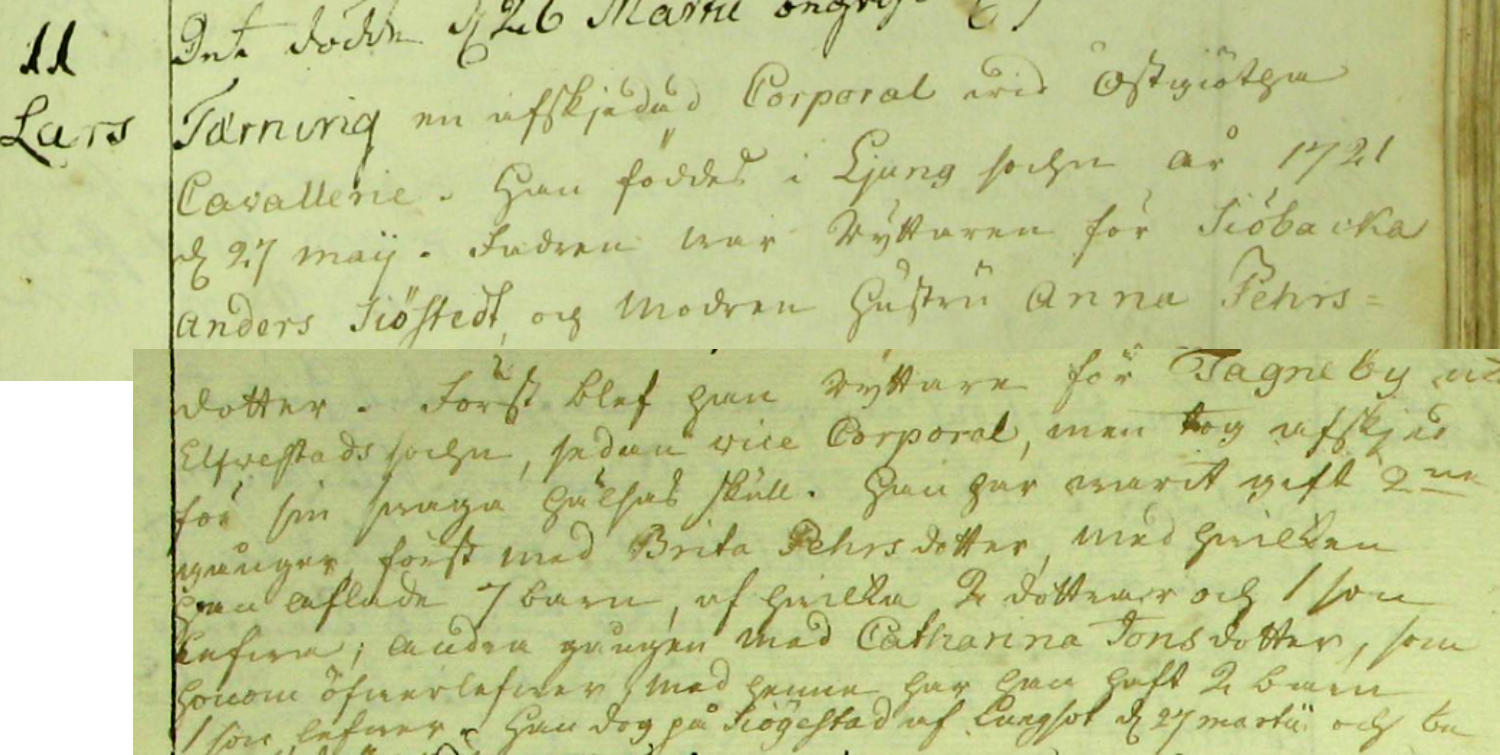 11 Det dödde d 26 Martii
Lars Tærning en afskjedad Corporal wid Östgiötha
Cavallerie. Han föddes i Ljung sochn år 1721
d 27 maÿ. Fadren war Rÿttaren för Siöbacka
Anders Siöstedt, och Modren Hustru Anna Pehrs=
dotter. Först blef han Rÿttare för Tagneby uti
Elfvestads sochn, sedan vice Corporal, men tog afskjed
för sin swaga hälsas skull. Han har warit gift 2ne
gånger, först med Brita Pehrsdotter, med hvilken
han aflade 7 barn, af hvilka 2 döttrar och 1 son
lefva; andra gången med Catharina Jonsdotter, som
honom öfwerlefwer, med henne har han haft 2 barn
1 son lefwer. Han dog på Siögestad af Lungsot d 27 martii och be